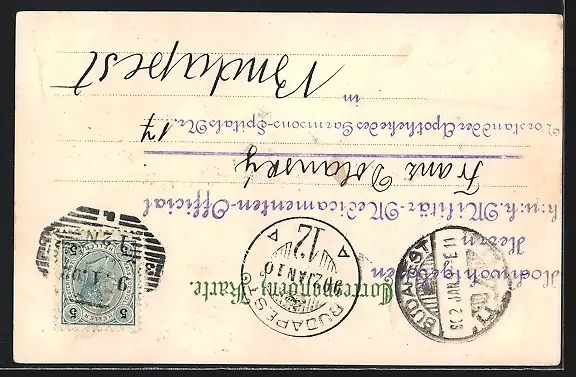 Correspondenz-Karte.
Hochwohlgeboren
Herrn
k: u: k. Militär-Medicamenten-Official
Franz Dolansky
Vorstand der Apotheke des Garnisons-Spitals Nr. 17
in
Budapest
5 5
WIEN
BUDAPEST
902 JAN 10
A 12 A
BUDAPEST
902 JAN